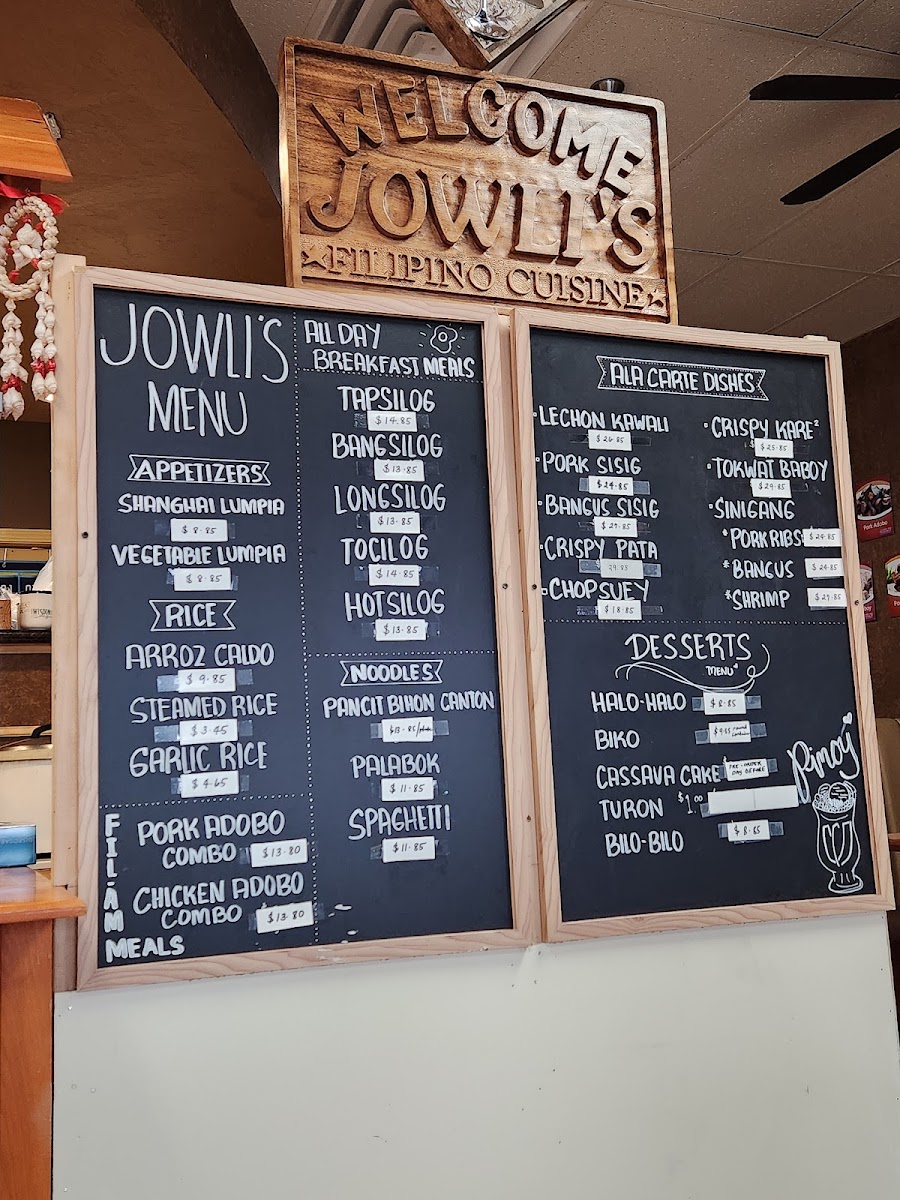 WELCOME
JOWLI'S
FILIPINO CUISINE
JOWLI'S
MENU
APPETIZERS
SHANGHAI LUMPIA
$8.85
VEGETABLE LUMPIA
$8.85
RICE
ARROZ CALDO
$9.85
STEAMED RICE
$3.45
GARLIC RICE
$4.65
FIL-AM
MEALS
PORK ADOBO
COMBO $13.80
CHICKEN ADOBO
COMBO $13.80
ALL DAY
BREAKFAST MEALS
TAPSILOG
$14.85
BANGSILOG
$13.85
LONGSILOG
$13.85
TOCILOG
$14.85
HOTSILOG
$13.85
NOODLES
PANCIT BIHON CANTON
$13.85
PALABOK
$11.85
SPAGHETTI
$11.85
ALA CARTE DISHES
LECHON KAWALI
$26.85
PORK SISIG
$24.85
BANGUS SISIG
CRISPY PATA
29.85
CHOPSUEY
$18.85
CRISPY KARE²
$25.85
TOKWAT BABOY
$29.85
SINIGANG
*PORK RIBS $24.85
*BANGUS $24.85
*SHRIMP
DESSERTS
MENU
HALO-HALO $8.85
BIKO
CASSAVA CAKE PRE-ORDER
DAY BEFORE
TURON $1.00
BILO-BILO $8.65
Pinoy
Pork Adobo